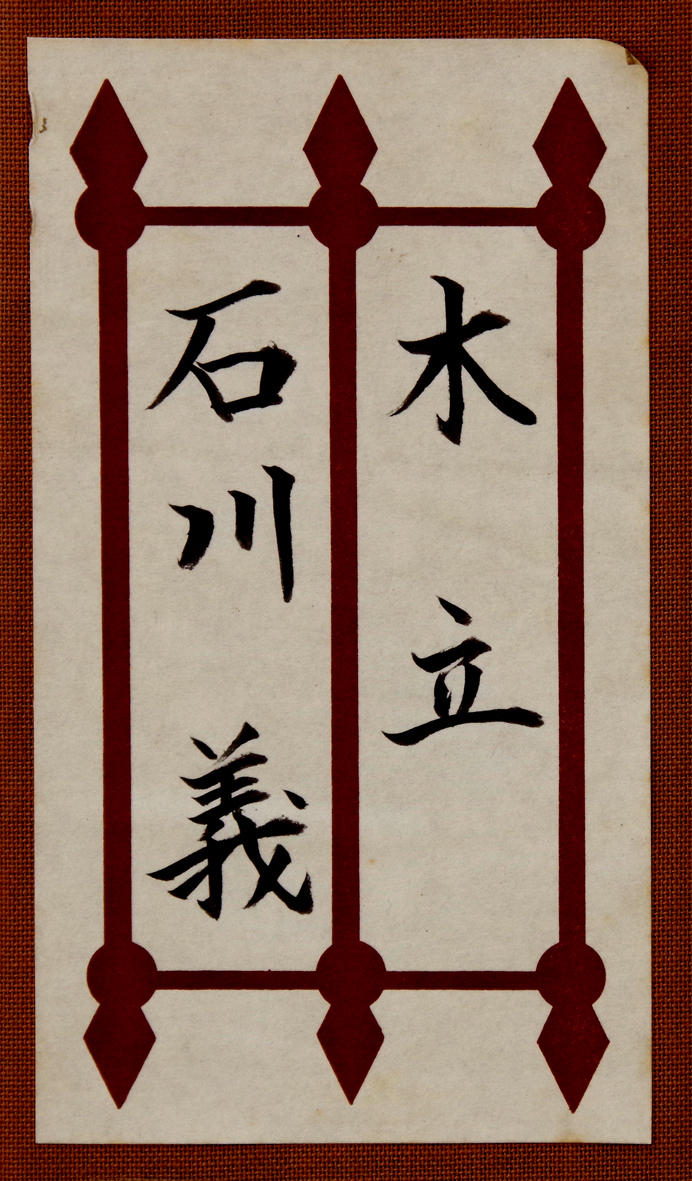 木立
石川義